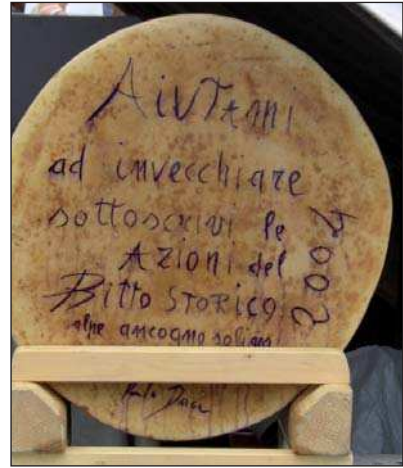 AiUTAMI
ad invecchiare
sottoscrivi le
AZIONI del
Bitto STORICO
2004
alpe ancogno soliva